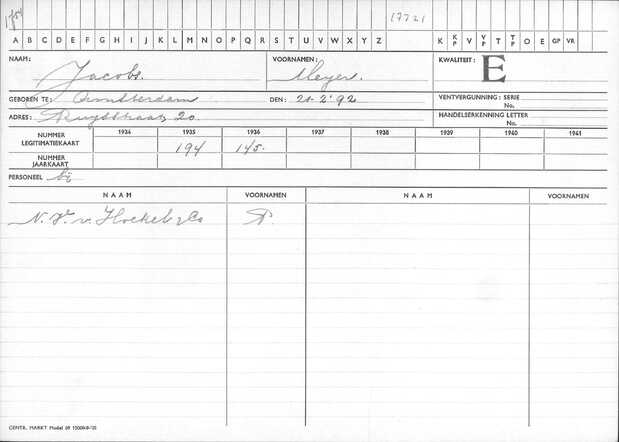 17721
A B C D E F G H I J K L M N O P Q R S T U V W X Y Z K KP V VP T TP O E GP VR
NAAM: Jacobs. VOORNAMEN: Meyer. KWALITEIT: E
GEBOREN TE: Amsterdam DEN: 21-2-'92 VENTVERGUNNING: SERIE
No.
ADRES: Ruyschstraat 20. HANDELSERKENNING LETTER
No.
NUMMER LEGITIMATIEKAART 1934 1935 1936 1937 1938 1939 1940 1941
194 145.
NUMMER JAARKAART
PERSONEEL bij
NAAM VOORNAMEN NAAM VOORNAMEN
N.V. v. &Co P.
CENTR. MARKT Model 69